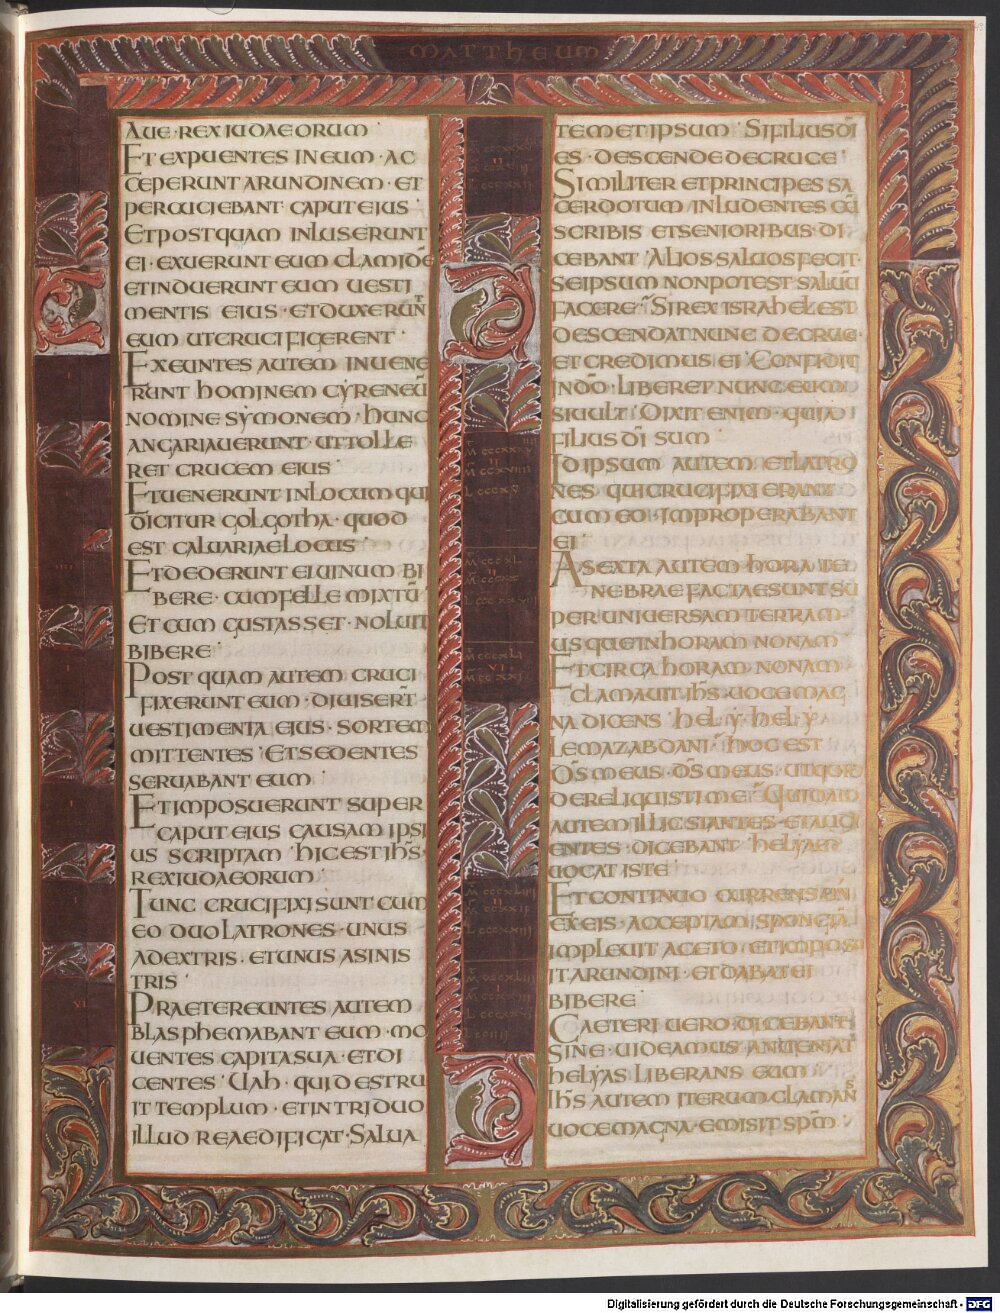 MATTHEUM
AUE · REX IUDAEORUM
ET EXPUENTES IN EUM · AC
CEPERUNT ARUNDINEM · ET
PERCUCIEBANT CAPUT EIUS
ET POSTQUAM INLUSERUNT
EI · EXUERUNT EUM CLAMIDĒ
ET INDUERUNT EUM UESTI
MENTIS EIUS · ET DUXERUNT
EUM UT CRUCIFIGERENT
EXEUNTES AUTEM INUENE
RUNT HOMINEM CYRENEŪ
NOMINE SYMONEM · HUNC
ANGARIAUERUNT · UT TOLLE
RET CRUCEM EIUS
ET UENERUNT IN LOCUM QUI
DICITUR GOLGOTHA · QUOD
EST CALUARIAE LOCUS
ET DEDERUNT EI UINUM BI
BERE · CUM FELLE MIXTŪ
ET CUM GUSTASSET · NOLUIT
BIBERE
POST QUAM AUTEM CRUCI
FIXERUNT EUM · DIUISERT̄
UESTIMENTA EIUS · SORTEM
MITTENTES · ET SEDENTES
SERUABANT EUM
ET IMPOSUERUNT SUPER
CAPUT EIUS CAUSAM IPSI
US SCRIPTAM · HIC EST IH̄S ·
REX IUDAEORUM
TUNC CRUCIFIXI SUNT CUM
EO DUO LATRONES · UNUS
A DEXTRIS · ET UNUS A SINIS
TRIS
PRAETEREUNTES AUTEM
BLASPHEMABANT EUM · MO
UENTES CAPITA SUA · ET DI
CENTES · UAH · QUI DESTRU
IT TEMPLUM · ET IN TRIDUO
ILLUD REAEDIFICAT · SALUA
TEMET IPSUM · SI FILIUS DĪ
ES · DESCENDE DE CRUCE
SIMILITER ET PRINCIPES SA
CERDOTUM INLUDENTES CŪ
SCRIBIS ET SENIORIBUS · DI
CEBANT · ALIOS SALUOS FECIT ·
SE IPSUM NON POTEST SALUŪ
FACERE · SI REX ISRAHEL EST
DESCENDAT NUNC DE CRUCE ·
ET CREDIMUS EI · CONFIDIT
IN DŌ · LIBERET NUNC EUM
SI UULT · DIXIT ENIM · QUIA
FILIUS DĪ SUM
ID IPSUM AUTEM ET LATRO
NES QUI CRUCIFIXI ERANT
CUM EO · IMPROPERABANT
EI
A SEXTA AUTEM HORA TE
NEBRAE FACTAE SUNT SU
PER UNIUERSAM TERRAM ·
USQUE IN HORAM NONAM
ET CIRCA HORAM NONAM
CLAMAUIT IH̄S UOCE MAG
NA DICENS · HELY · HELY
LEMA ZABDANI · HOC EST
D̄S MEUS · D̄S MEUS · UT QUID
DERELIQUISTI ME · QUIDAM
AUTEM ILLIC STANTES · ET AUDI
ENTES · DICEBANT · HELIAM
UOCAT ISTE
ET CONTINUO CURRENS UN
EX EIS · ACCEPTAM SPONGIA
IMPLEUIT ACETO · ET IMPOSU
IT ARUNDINI · ET DABAT EI
BIBERE
CAETERI UERO · DICEBANT
SINE · UIDEAMUS AN UENIAT
HELYAS LIBERANS EUM
IH̄S AUTEM ITERUM CLAMANS
UOCE MAGNA · EMISIT SP̄M ·
Digitalisierung gefördert durch die Deutsche Forschungsgemeinschaft - DFG